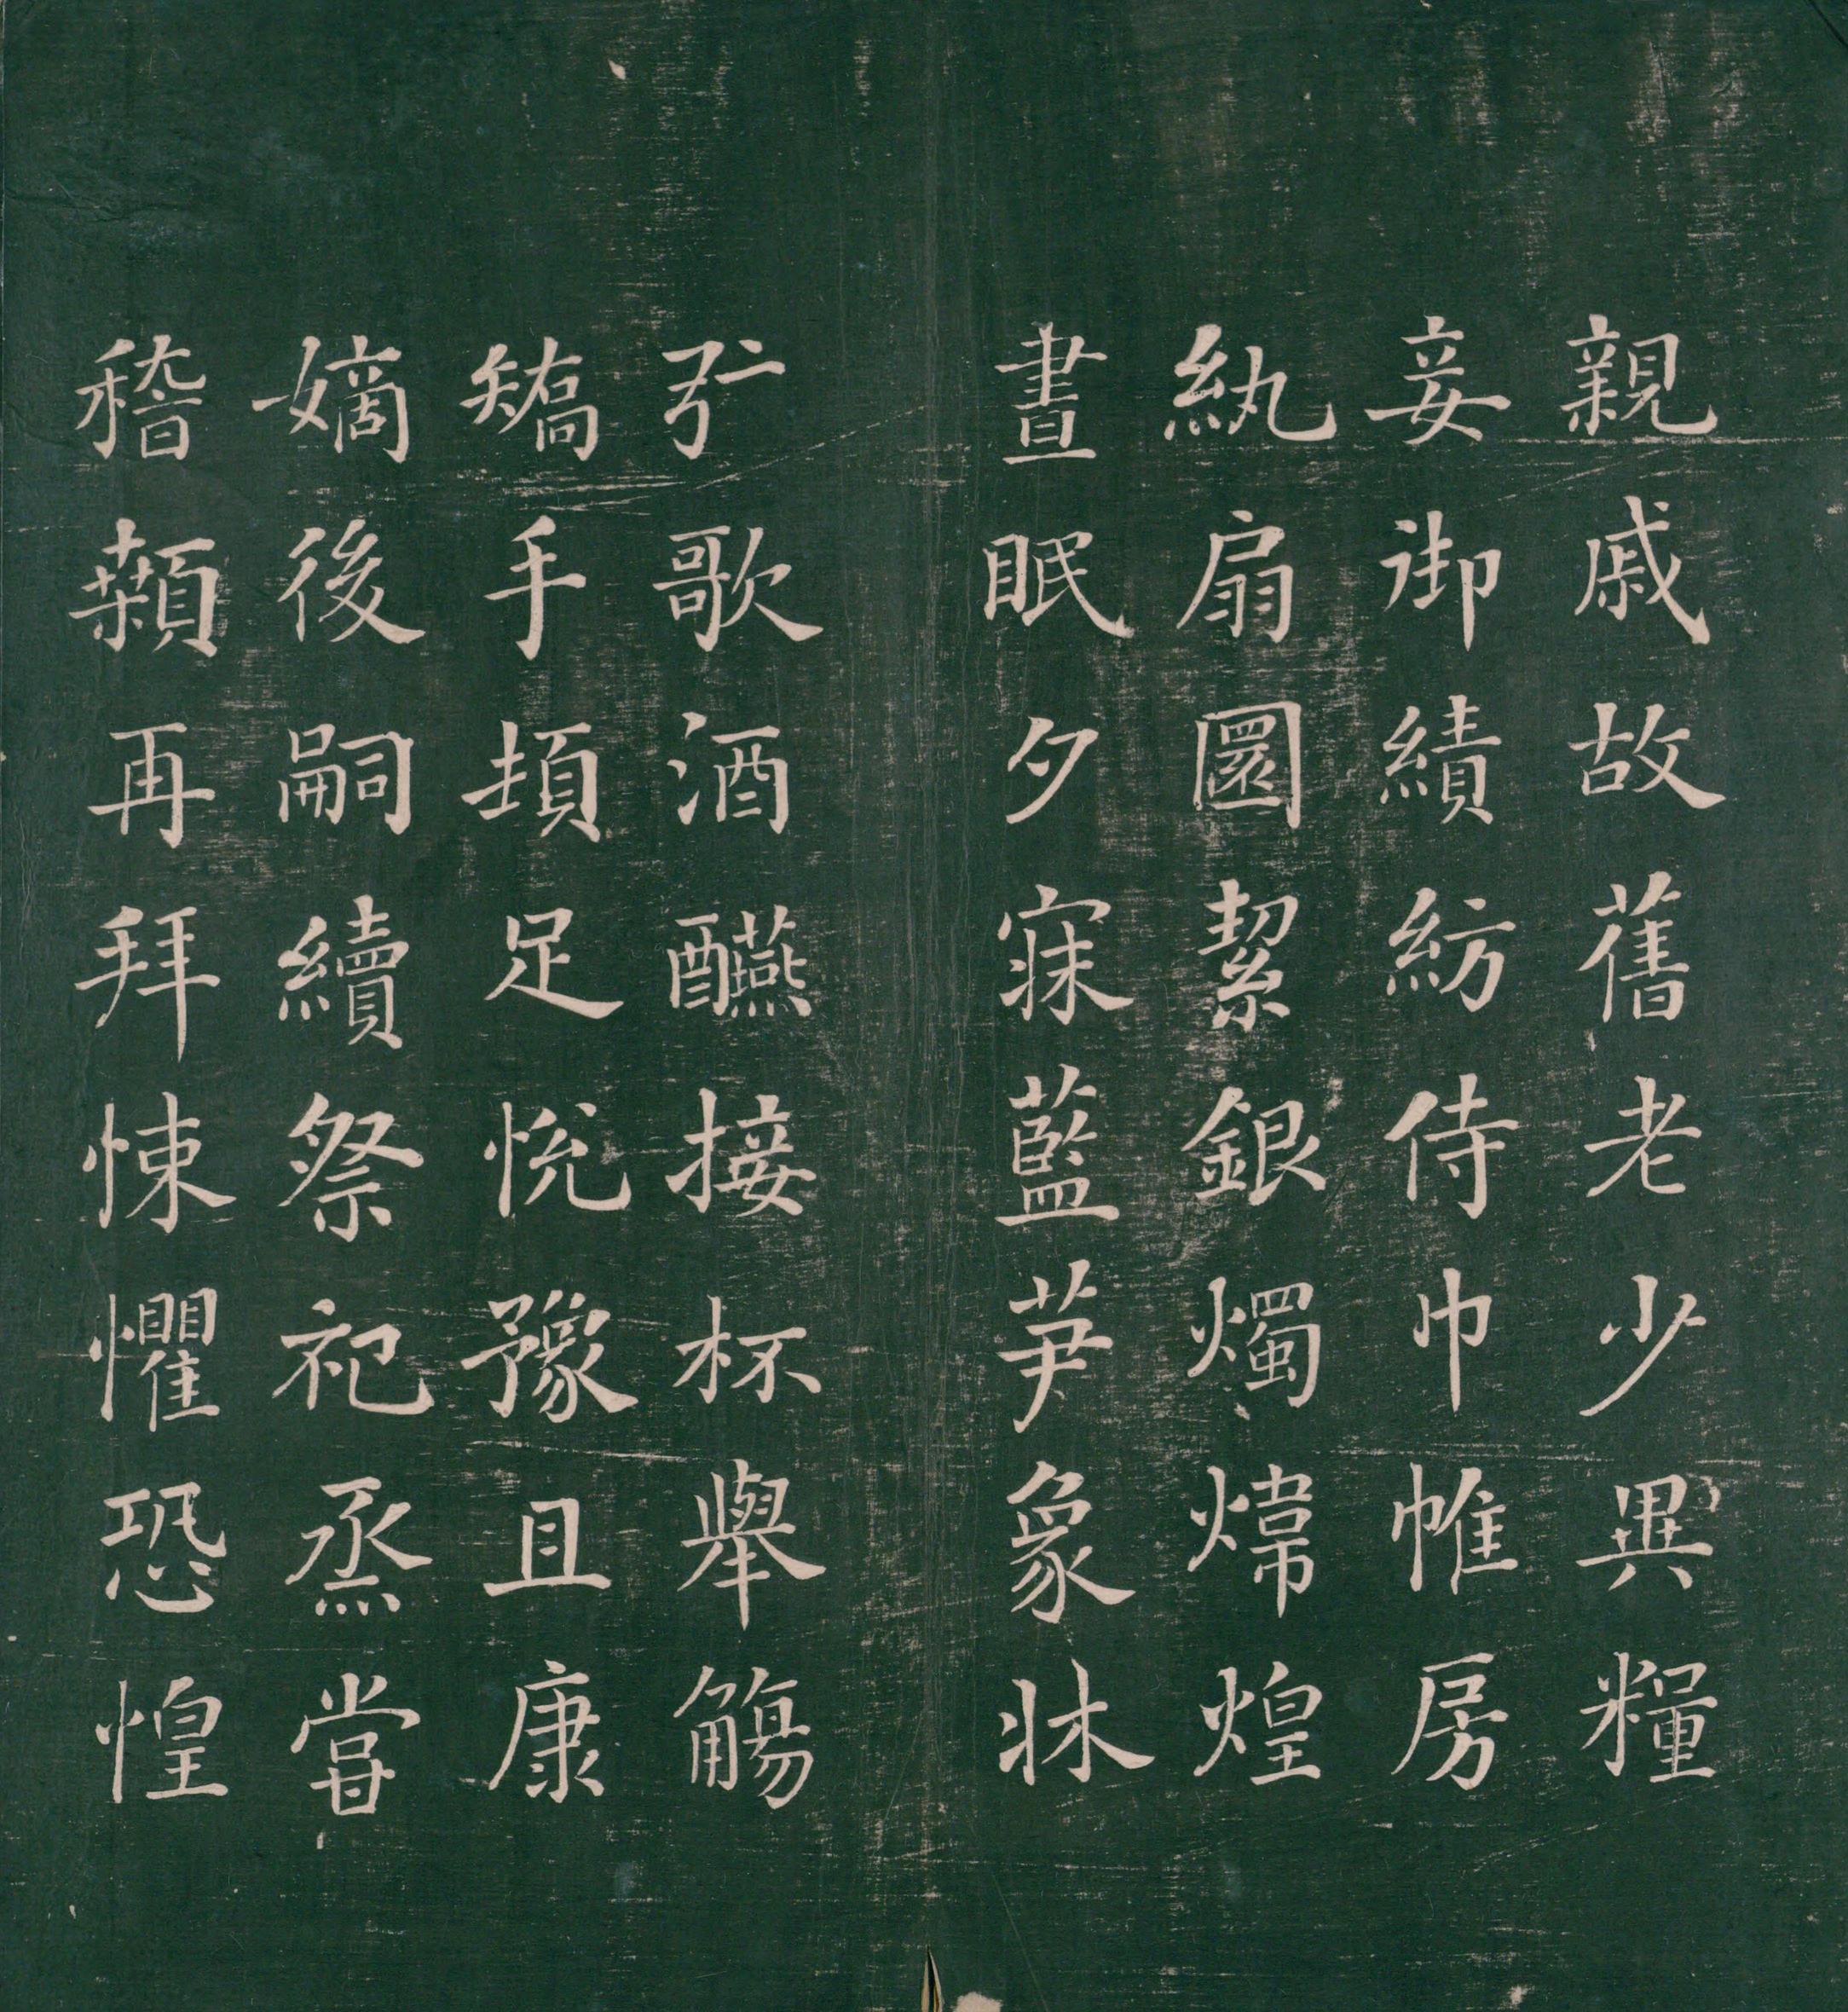 親戚故舊老少異糧
妾御績紡侍巾帷房
紈扇圜絜銀燭煒煌
晝眠夕寐藍芛象牀
弦歌酒醼接杯舉觴
矯手頓足悅豫且康
嫡後嗣續祭祀烝甞
稽顙再拜悚懼恐惶